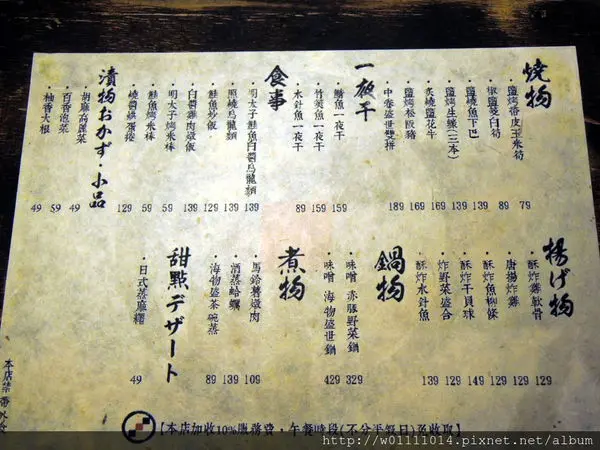 燒物
鹽烤帶皮玉米筍 79
椒鹽筊白筍 89
鹽燒魚下巴 139
鹽烤生蠔(三本) 139
炙燒鹽花牛 169
鹽烤松阪豬 169
中卷盛世雙拼 189
一夜干
鯖魚一夜干 159
竹筴魚一夜干 159
水針魚一夜干 89
食事
明太子鮭魚白醬烏龍麵 139
照燒烏龍麵 139
鮭魚炒飯 129
白醬雞肉燉飯 139
明太子烤米棒 59
鮭魚烤米棒 59
燒醬蛋捲 129
漬物おかず・小品
胡麻高麗菜 49
百香泡菜 59
柚香大根 49
揚げ物
酥炸雞軟骨 129
唐揚炸雞 129
酥炸魚柳條 129
酥炸干貝球 149
炸野菜盛合 129
酥炸水針魚 139
鍋物
味噌 赤豚野菜鍋 329
味噌 海物盛世鍋 429
煮物
馬鈴薯燉肉 109
酒蒸蛤蠣 139
海物盛茶碗蒸 89
甜點デザート
日式蒸麻糬 49
本店禁帶外食
【本店加收10%服務費・午餐時段(不分平假日)免收取】
http://w01111014.pixnet.net/album